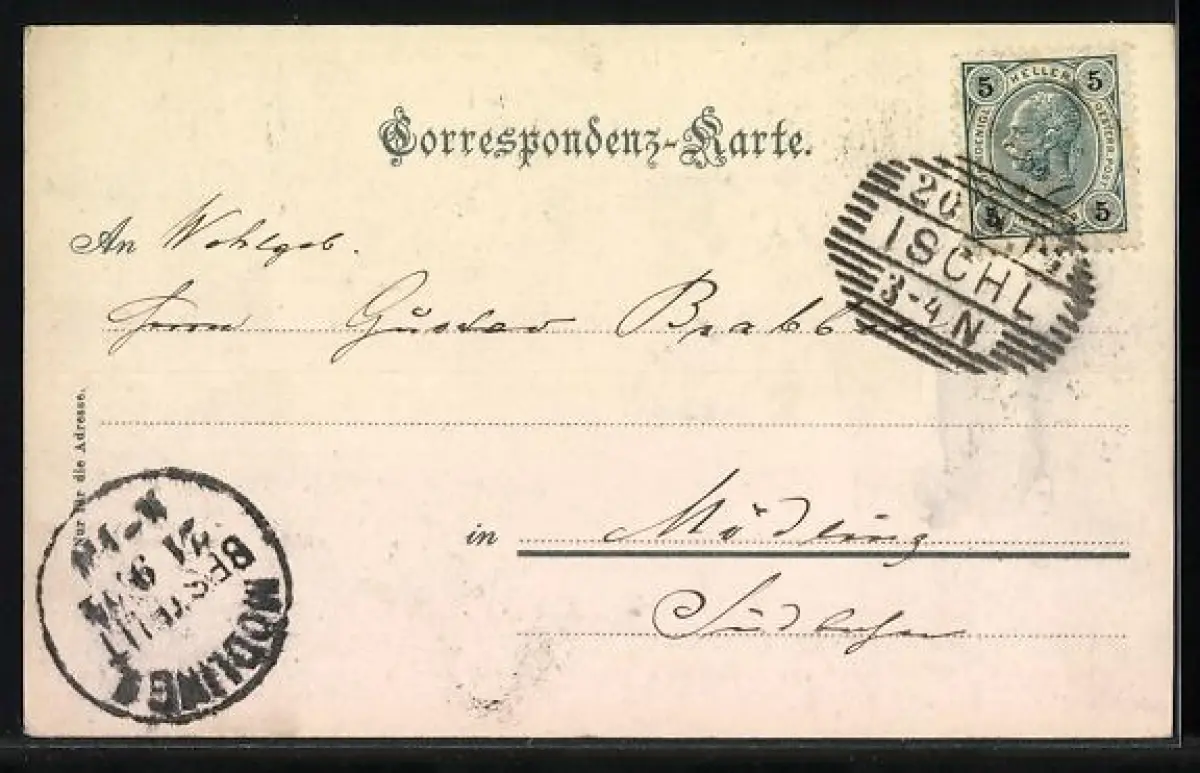 Correspondenz-Karte.
5 HELLER 5
5 5
20.
ISCHL
3-4 N
An Wohlgeb.
Herrn Gustav
Nur für die Adresse.
in Mödling
Südbahn
BESTELLT
MÖDLING